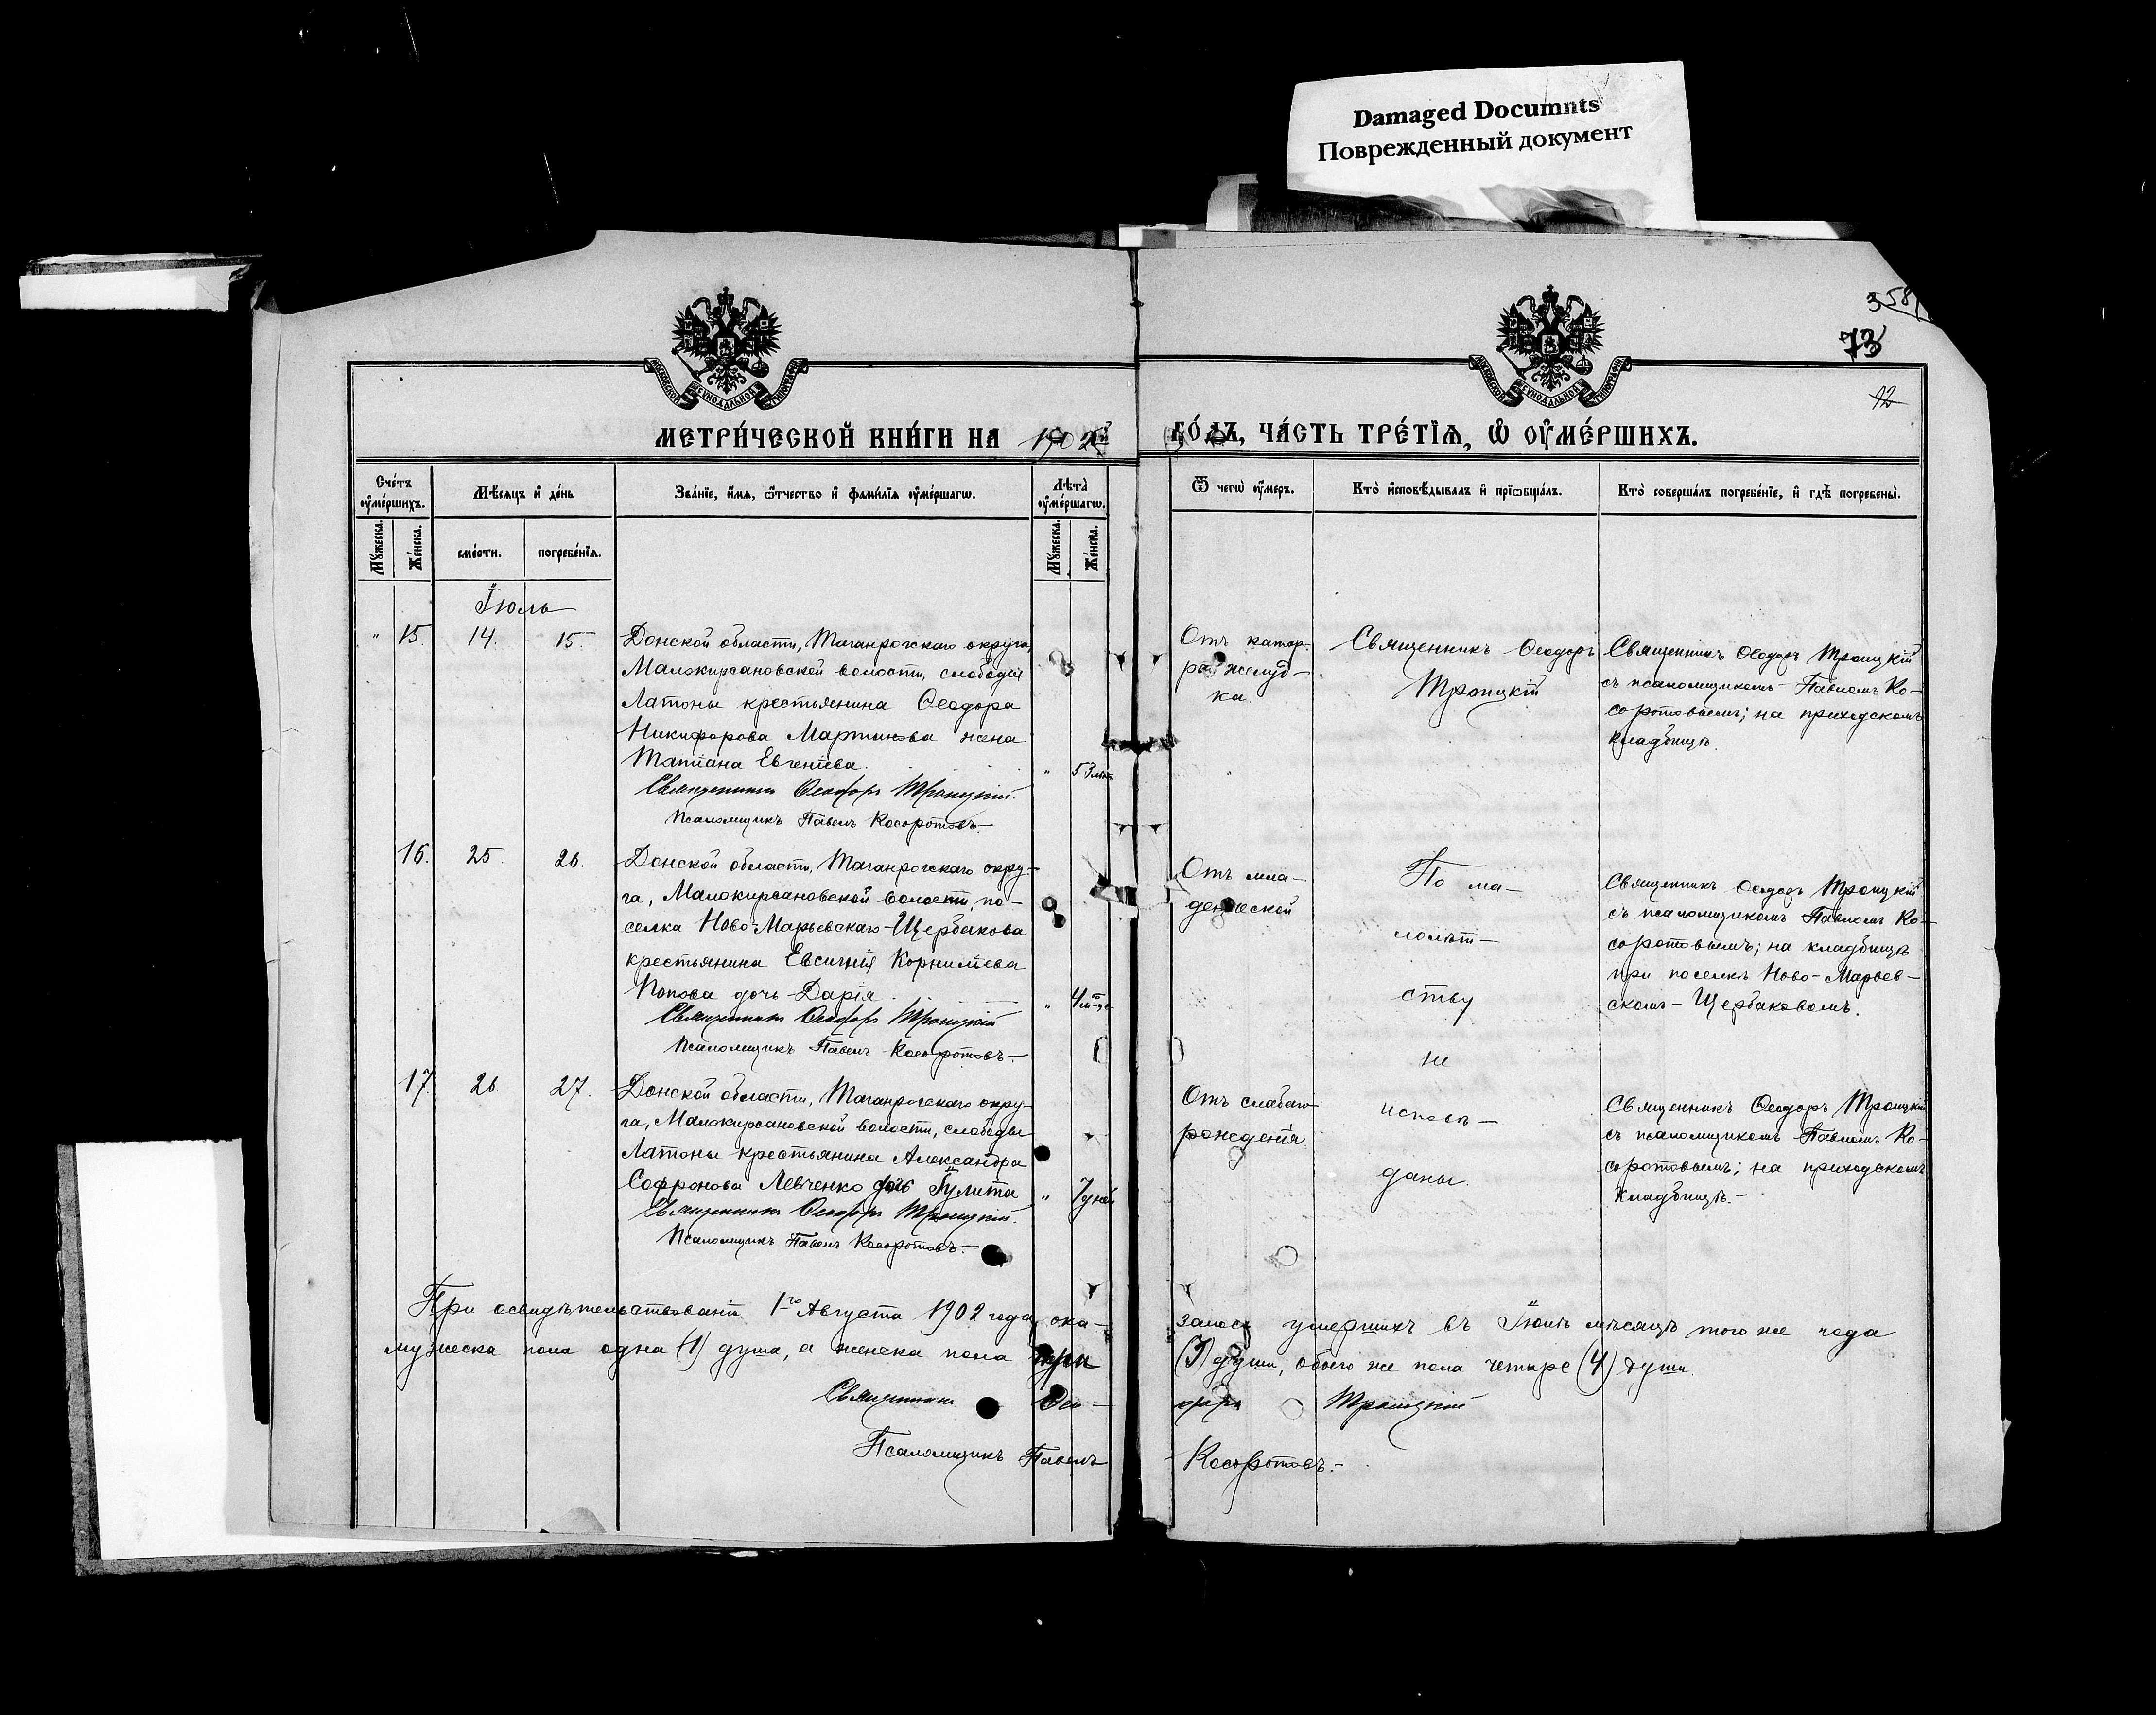 Damaged Documnts
Поврежденный документ
358
73
12
МОСКОВСКОЙ СѴНОДАЛЬНОЙ ТИПОГРАФІИ
МОСКОВСКОЙ СѴНОДАЛЬНОЙ ТИПОГРАФІИ
МЕТРИ́ЧЕСКОЙ КНИ́ГИ НА 1902й
ГО́ДЪ, ЧА́СТЬ ТРЕ́ТЇѦ, Ѽ ОУ҆МЕ́РШИХЪ.
Счетъ оу҆ме́ршихъ.
Мѣсяцъ и҆ де́нь
Зва́нїе, и҆́мя, ѻ҆́тчество и҆ фами́лїя оу҆ме́ршагѡ.
Лѣта̀ оу҆ме́ршагѡ.
Ѿ чегѡ̀ оу҆́меръ.
Кто̀ и҆сповѣ́дывалъ и҆ прїѡбща́лъ.
Кто̀ соверша́лъ погребе́нїе, и҆ гдѣ̀ погребены̀.
Мꙋжеска.
Же́нска.
сме́рти.
погребе́нїя.
Мꙋжеска.
Же́нска.
Іюль
" 15. 14. 15.
Донской области, Таганрогскаго округа,
Малокирсановской волости, слободы
Латоны крестьянина Ѳеодора
Никифорова Мартынова жена
Татіана Евгеніева. " 53 лѣт
Священникъ Ѳеодоръ Троицкій.
Псаломщикъ Павелъ Косоротовъ.
Отъ катар-
ра желуд-
ка.
Священникъ Ѳеодоръ
Троицкій
Священникъ Ѳеодоръ Троицкій
съ псаломщикомъ Павломъ Ко-
соротовымъ; на приходскомъ
кладбищѣ.
16. 25. 26.
Донской области, Таганрогскаго окру-
га, Малокирсановской волости, по-
селка Ново-Марьевскаго-Щербакова
крестьянина Евсигнія Корниліева
Попова дочь Дарія. " 4
Священникъ Ѳеодоръ Троицкій
Псаломщикъ Павелъ Косоротовъ.
Отъ мла-
денческой
По ма-
лолѣт-
ству
не
исповѣ-
даны.
Священникъ Ѳеодоръ Троицкій
съ псаломщикомъ Павломъ Ко-
соротовымъ; на кладбищѣ
при поселкѣ Ново-Марьев-
скомъ-Щербаковомъ.
17. 26. 27.
Донской области, Таганрогскаго окру-
га, Малокирсановской волости, слободы
Латоны крестьянина Александра
Софронова Левченко дочь Іулита " 7 дней
Священникъ Ѳеодоръ Троицкій.
Псаломщикъ Павелъ Косоротовъ.
Отъ слабаго
рожденія.
Священникъ Ѳеодоръ Троицкій
съ псаломщикомъ Павломъ Ко-
соротовымъ; на приходскомъ
кладбищѣ.
При освидѣтельствованіи 1го Августа 1902 года ока-
залось умершихъ въ Іюлѣ мѣсяцѣ того же года
мужеска пола одна (1) душа, а женска пола три
(3) души, обоего же пола четыре (4) души.
Священникъ Ѳео-
доръ Троицкій
Псаломщикъ Павелъ
Косоротовъ.